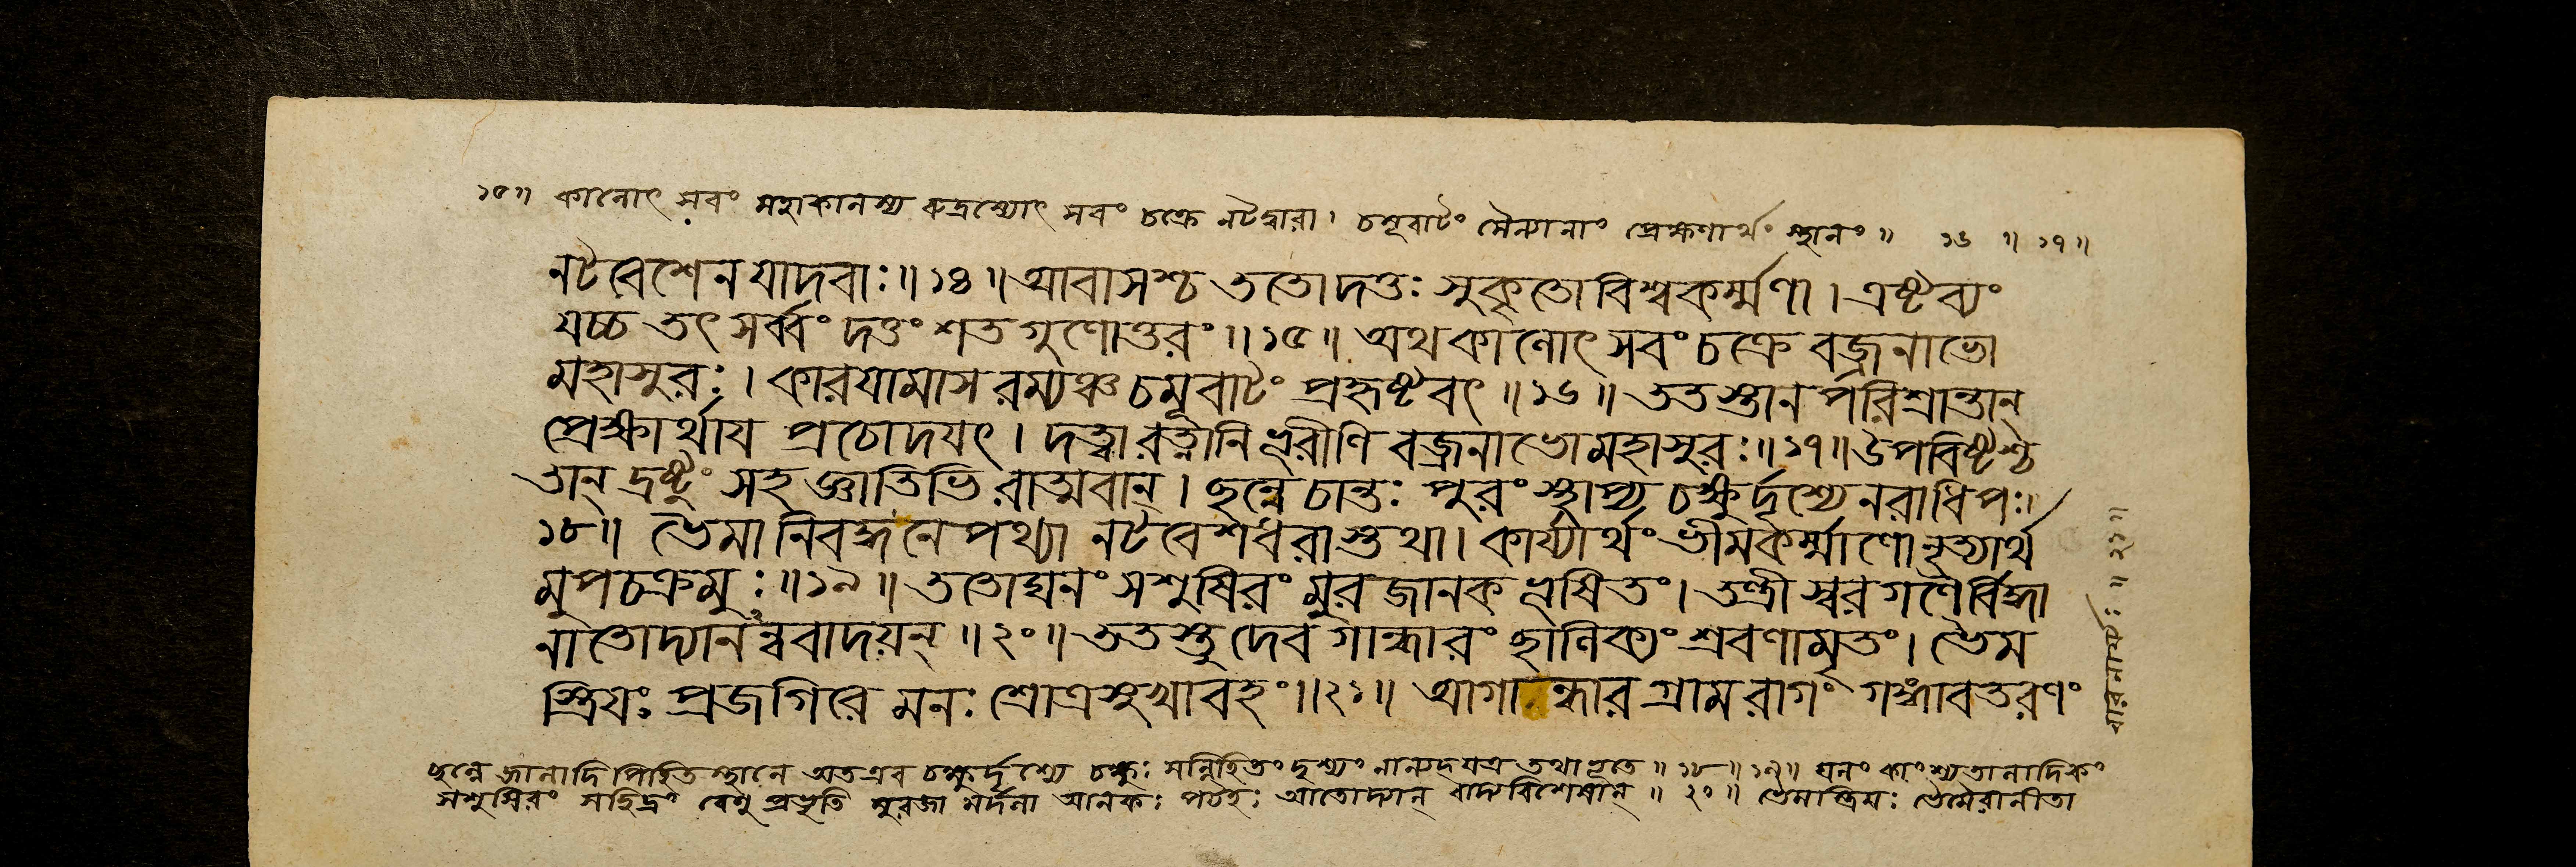 ১৫॥ কালোৎসবং মহাকালস্য রুদ্রস্যোৎসবং চক্রে নটদ্বারা। চমূবাটং সৈন্যানাং প্রেক্ষণার্থং স্থানং॥ ১৬ ॥ ১৭॥
নটবেশেন যাদবাঃ॥১৪॥ আবাসশ্চ ততো দত্তঃ সুকৃতো বিশ্বকর্ম্মণা। এষ্টব্যং
যচ্চ তৎ সর্ব্বং দত্তং শতগুণোত্তরং॥১৫॥ অথ কালোৎসবং চক্রে বজ্রনাভো
মহাসুরঃ। কারযামাস রম্যঞ্চ চমূবাটং প্রহৃষ্টবৎ॥১৬॥ ততস্তান পরিশ্রান্তান্
প্রেক্ষার্থায প্রচোদযৎ। দত্ত্বা রত্নানি ভূরীণি বজ্রনাভো মহাসুরঃ॥১৭॥ উপবিষ্টশ্চ
তান্ দ্রষ্টুং সহ জ্ঞাতিভিরাত্মবান্। ছন্নে চান্তঃপুরং স্থাপ্য চক্ষুর্দৃশ্যে নরাধিপঃ॥
১৮॥ ভৈমা নিবদ্ধনেপথ্যা নটবেশধরাস্তথা। কার্য্যার্থং ভীমকর্ম্মাণো নৃত্যার্থ
মুপচক্রমুঃ॥১৯॥ ততো ঘনং সশুষিরং মুরজানকভূষিতং। তন্ত্রীস্বরগণৈর্বিদ্ধা
নাতোদ্যানন্ববাদয়ন্॥২০॥ ততস্তু দেবগান্ধারং ছাণিক্যং শ্রবণামৃতং। ভৈম
স্ত্রিযঃ প্রজগিরে মনঃশ্রোত্রসুখাবহং॥২১॥ আগান্ধারগ্রামরাগং গঙ্গাবতরণং
ছন্নে জালাদিপিহিতস্থানে অতএব চক্ষুর্দৃশ্যে চক্ষুঃ সন্নিহিতং দৃশ্যং নান্যদ্যত্র তথাভূতে॥১৮॥১৯॥ ঘনং কাংশ্যতালাদিকং
সশুষিরং সছিদ্রং বেণুপ্রভৃতি মুরজা মর্দলা আনকঃ পটহঃ আতোদ্যান্ বাদ্যবিশেষান্॥২০॥ ভৈমস্ত্রিযঃ ভৈমৈরানীতা
বারনার্য্যঃ॥২১॥